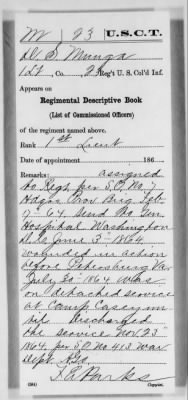 M | 23 | U.S.C.T.
D. E. Munga
1st, Co. 23 Reg't U. S. Col'd Inf.
Appears on
Regimental Descriptive Book
(List of Commissioned Officers)
of the regiment named above.
Rank 1st Lieut
Date of appointment , 186 .
Remarks: assigned
to Regt. per S.O. No 7
Prov Brig Feb
7" 64. Gen
Hospital Washington
D.C. June 3" 1864
wounded in action
before Petersburg Va
July 30" 1864 was
on detached service
at Camp Casey
Discharged
the service Nov. 23"
1864. per S.O. No 413 War
Dept. A.G.O.
Parks
Copyist.